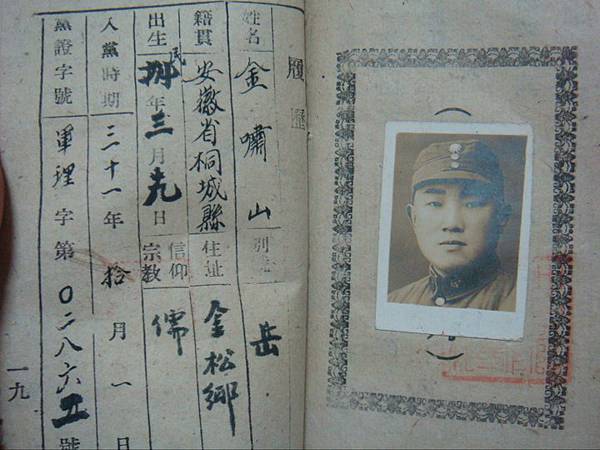 履歷
姓名 金嘯山 別 岳
籍貫 安徽省桐城縣 住址 金松鄉
出生 民捌年三月十九日 信仰宗教 儒
入黨時期 三十一年拾月一日
黨證字號 軍理字第0二八六五號
一九